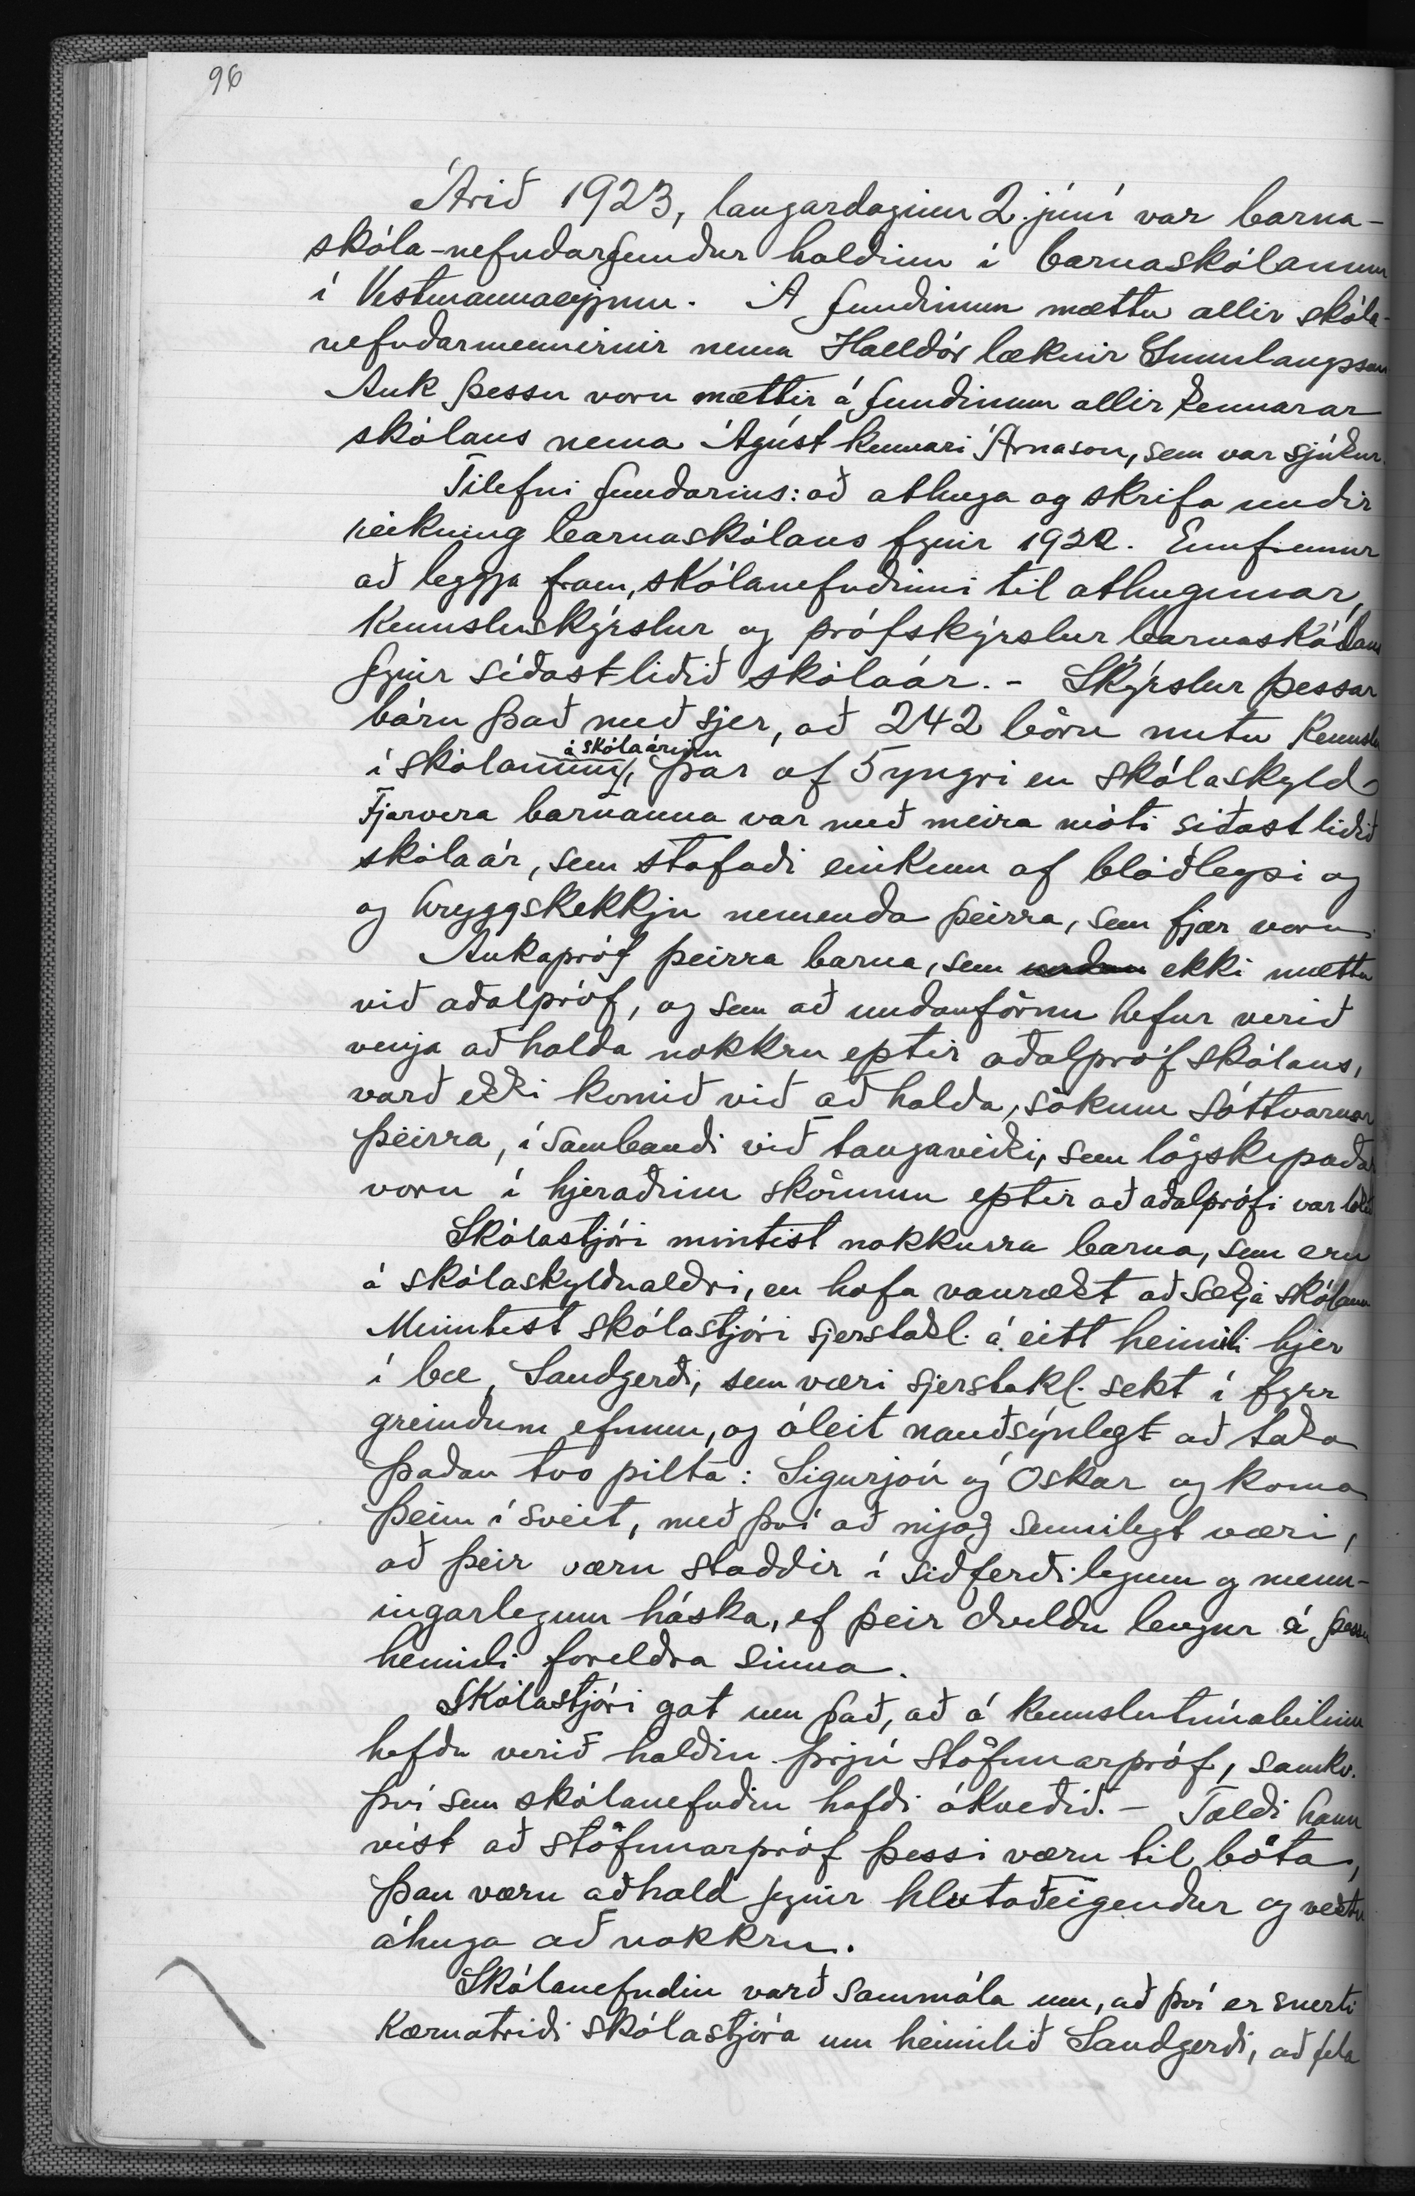 96
Árið 1923, laugardaginn 2. júní var barna-
skóla-nefndarfundur haldinn í barnaskólanum
í Vestmannaeyjum. Á fundinum mættu allir skóla-
nefndarmennirnir nema Halldór læknir Gunnlaugsson
Auk þessu voru mættir á fundinum allir kennarar
skólans nema Ágúst kennari Árnason, sem var sjúkur.
Tilefni fundarins: að athuga og skrifa undir
reikning barnaskólans fyrir 1922. Ennfremur
að leggja fram, skólanefndinni til athugunar,
kennsluskýrslur og prófskýrslur barnaskólans
fyrir síðastliðið skólaár. - Skýrslur þessar
báru það með sjer, að 242 börn nutu kennslu
í skólanum á skólaárinu, þar af 5 yngri en skólaskyld
Fjarvera barnanna var með meira móti síðastliðið
skólaár, sem stafaði einkum af blóðleysi og
og hryggskekkju nemenda þeirra, sem fjær voru.
Aukapróf þeirra barna, sem ekki mættu
við aðalpróf, og sem að undanförnu hefur verið
venja að halda nokkru eptir aðalpróf skólans,
varð ekki komið við að halda, sökum sóttvarnar
þeirra, í sambandi við taugaveiki, sem lögskipaðar
voru í hjeraðinu skömmu eptir að aðalprófi var lokið
Skólastjóri mintist nokkurra barna, sem eru
á skólaskyldualdri, en hafa vanrækt að sækja skólann
Minntist skólastjóri sjerstakl. á eitt heimili hjer
í bæ, Sandgerði, sem væri sjerstakl. sekt í fyrr
greindum efnum, og áleit nauðsýnlegt að taka
þaðan tvo pilta: Sigurjón og Óskar og koma
þeim í sveit, með því að mjög sennilegt væri,
að þeir væru staddir í siðferðilegum og menn-
ingarlegum háska, ef þeir dveldu lengur á þessu
heimili foreldra sinna.
Skólastjóri gat um það, að á kennslutímabilinu
hefðu verið haldin þrjú stöfunarpróf, samkv.
því sem skólanefndin hafði ákveðið. - Taldi hann
víst að stöfunarpróf þessi væru til bóta,
þau væru aðhald fyrir hlutaðeigendur og vektu
áhuga að nokkru.
Skólanefndin varð sammála um, að því er snerti
kæruatriði skólastjóra um heimilið Sandgerði, að fela